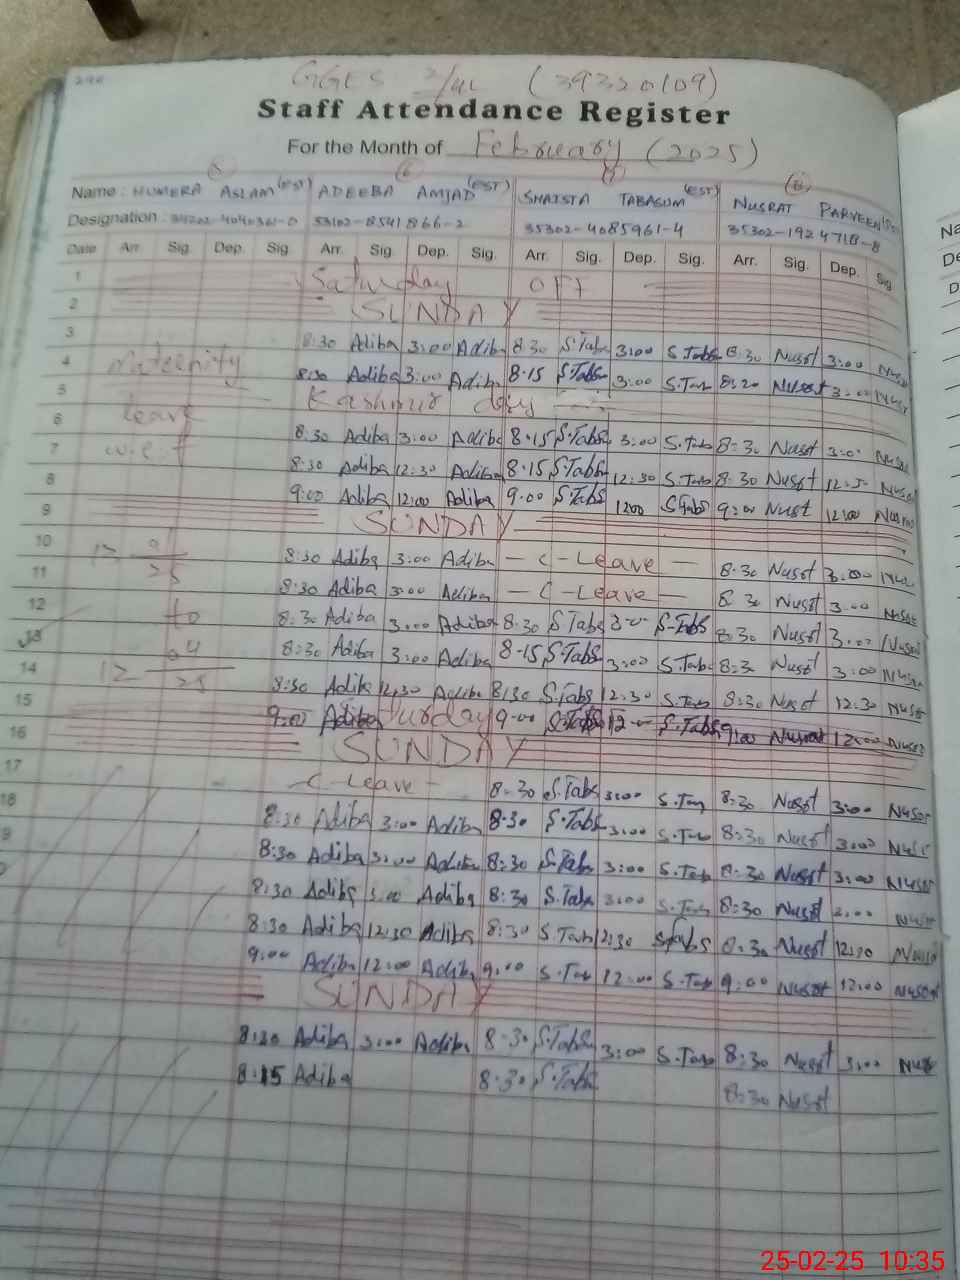 290
GGES 2/4L (39320109)
Staff Attendance Register
For the Month of February (2025)
Name : HUMERA ASLAM (EST) ADEEBA AMJAD (EST) SHAISTA TABASUM (EST) NUSRAT PARVEEN
Designation : 35302-4085961-4
Date Arr. Sig. Dep. Sig. Arr. Sig. Dep. Sig. Arr. Sig. Dep. Sig. Arr. Sig. Dep. Sig.
1 Saturday OFF
2 SUNDAY
3 8:30 Adiba 3:00 Adiba 8:30 S.Tabs 3:00 S.Tabs 8:30 Nusrt 3:00
4 Maternity 8:30 Adiba 3:00 Adiba 8.15 S.Tabs 3:00 S.Tab 8:20 Nusrt 3:00
5 Kashmir day
6 leave 8:30 Adiba 3:00 Adiba 8.15 S.Tabs 3:00 S.Tab 8:30 Nusrt 3:0
7 w.e.f 8:30 Adiba 12:30 Adiba 8.15 S.Tabs 12:30 S.Tab 8:30 Nusrt
8 9:00 Adiba 12:00 Adiba 9.00 S.Tabs 1200 STabs 9:00 Nusrt 12:00
9 SUNDAY
10 8:30 Adiba 3:00 Adiba - C - Leave - 8:30 Nusrt 3:00
11 25 8:30 Adiba 3:00 Adiba - C - Leave - 8:30 Nusrt 3.00
12 to 8:30 Adiba 3:00 Adiba 8:30 S.Tabs S.Tabs 8:30 Nusrt 3:00
13 8:30 Adiba 3:00 Adiba 8-15 S.Tabs 3:00 S.Tabs 8:30 Nusrt 3:00
14 25 8:30 Adiba 12:30 Adiba 8:30 S.Tabs 12:30 S.Tabs 8:30 Nusrt 12:30
15 9:00 Adiba 9.00 S.Tabs S.Tabs 9:00 Nusrat 12:00
16 SUNDAY
17 C-Leave - 8:30 S.Tabs 3:00 S.Tab 8:30 Nusrt 3:00
18 8:30 Adiba 3:00 Adiba 8:30 S.Tabs 3:00 S.Tab 8:30 Nusrt 3:00
8:30 Adiba 3:00 Adiba 8:30 S.Tabs 3:00 S.Tab 8:30 Nusrt 3:00
8:30 Adiba 3:00 Adiba 8:30 S.Tabs 3:00 S.Tab 8:30 Nusrt 3:00
8:30 Adiba 12:30 Adiba 8:30 S.Tab 12:30 STabs 8:30 Nusrt 12:30
9:00 Adiba 12:00 Adiba 9:00 S.Tab 12:00 S.Tab 9:00 Nusrt 12:00
SUNDAY
8:30 Adiba 3:00 Adiba 8:30 S.Tabs 3:00 S.Tab 8:30 Nusrt 3:00
8:15 Adiba 8:30 S.Tabs 8:30 Nusrt
25-02-25 10:35